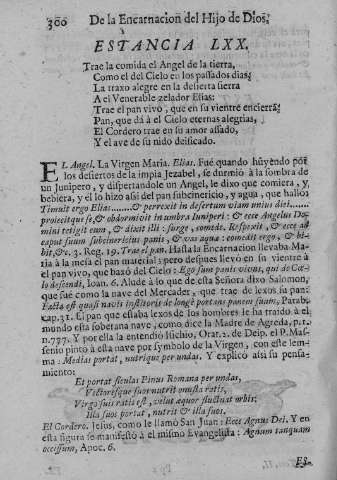 300 De la Encarnacion del Hijo de Dios,
ESTANCIA LXX.
Trae la comida el Angel de la tierra,
Como el del Cielo en los passados dias;
La traxo alegre en la desierta sierra
A el Venerable zelador Elias:
Trae el pan vivo, que en su vientre encierra;
Pan, que dá à el Cielo eternas alegrias,
El Cordero trae en su amor assado,
Y el ave de su nido deificado.
EL Angel. La Virgen Maria. Elias. Fuè quando huyendo por
los desiertos de la impia Jezabel, se durmiò à la sombra de
un Junipero, y dispertandole un Angel, le dixo que comiera, y
bebiera, y el lo hizo assi del pan subcinericio, y agua, que hallò:
Timuit ergo Elias...... & perrexit in desertum viam unius diei....
proiecitque se, & obdormivit in umbra Iuniperi: & ecce Angelus Do-
mini tetigit eum, & dixit illi: surge, comede. Respexit, & ecce ad
caput suum subcinericius panis, & vas aquæ: comedit ergo, & bi-
bit, &c. 3. Reg. 19. Trae el pan. Hasta la Encarnacion llevaba Ma-
ria à la mesa el pan material; pero despues llevò en su vientre à
el pan vivo, que baxò del Cielo: Ego sum panis vivus, qui de Cœ-
lo descendi, Ioan. 6. Alude à lo que de esta Señora dixo Salomon,
que fuè como la nave del Mercader, que trae de lexos su pan:
Facta est quasi navis institoris de longè portans panem suum, Parab.
cap. 31. El pan que estaba lexos de los hombres le ha traido à el
mundo esta soberana nave, como dice la Madre de Agreda, p. 1.
n. 797. Y por ella la entendiò Isichio, Orat. 2. de Deip. el P. Mas-
senio pintò à esta nave por symbolo de la Virgen, con este lem-
ma: Medias portat, nutrique per undas. Y explicò assi su pensa-
miento:
Et portat siculas Pinus Romana per undas,
Victoresque suos nutrit onusta ratis,
Virgo suis ratis est, velut æquor fluctuat orbis;
Illa suos portat, nutrit & illa suos.
El Cordero. Jesus, como le llamò San Juan: Ecce Agnus Dei. Y en
esta figura se manifestò à el mismo Evangelista: Agnum tanquam
occissum, Apoc. 6.